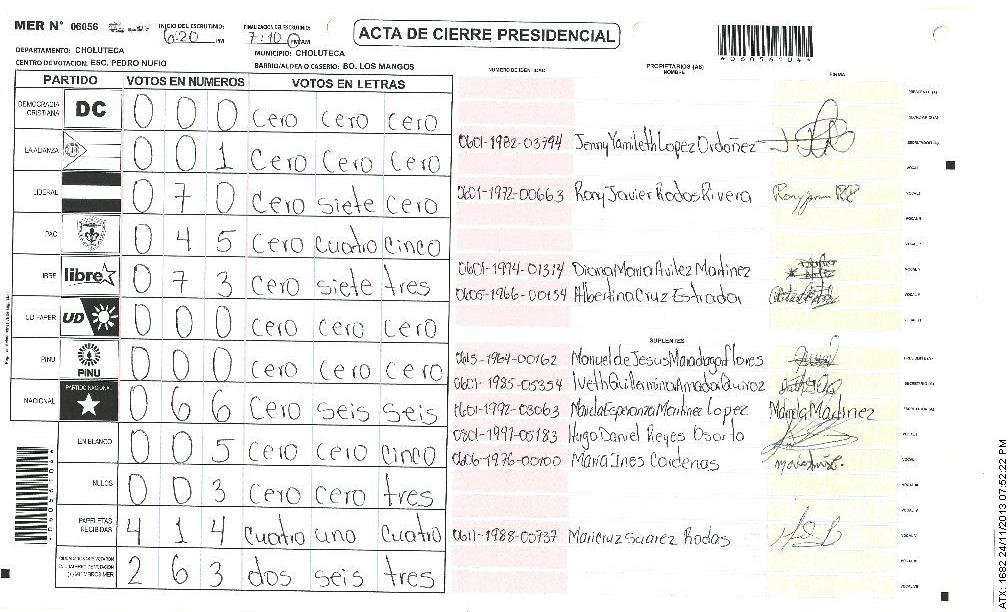 MER N° 06056
INICIO DEL ESCRUTINIO: 6:20 PM
FINALIZACION DEL ESCRUTINIO: 7:10 PM AM
ACTA DE CIERRE PRESIDENCIAL
*06056104*
DEPARTAMENTO: CHOLUTECA
MUNICIPIO: CHOLUTECA
CENTRO DE VOTACION: ESC. PEDRO NUFIO
BARRIO/ALDEA O CASERIO: BO. LOS MANGOS
PARTIDO VOTOS EN NUMEROS VOTOS EN LETRAS
DEMOCRACIA CRISTIANA DC 0 0 0 cero cero cero
LA ALIANZA 0 0 1 cero cero cero
LIBERAL 0 7 0 cero siete cero
PAC 0 4 5 cero cuatro cinco
LIBRE libre 0 7 3 cero siete tres
UD FAPER UD 0 0 0 cero cero cero
PINU PINU 0 0 0 cero cero cero
NACIONAL PARTIDO NACIONAL 0 6 6 cero seis seis
EN BLANCO 0 0 5 cero cero cinco
NULOS 0 0 3 cero cero tres
PAPELETAS RECIBIDAS 4 1 4 cuatro uno cuatro
2 6 3 dos seis tres
NUMERO DE IDENTIDAD PROPIETARIOS (AS) NOMBRE FIRMA
0601-1982-03794 Jenny Yamileth Lopez Ordoñez
0601-1972-00663 Rony Javier Rodas Rivera
0601-1994-01314 Diana Maria Avilez Martinez
0605-1966-00154 Albertina Cruz Estrada
SUPLENTES
0615-1964-00162 Manuel de Jesus Flores
0601-1985-05354 Iveth Guillermina Amador Quiroz
0601-1992-03063 Mariela Esperanza Martinez Lopez Mariela Martinez
0801-1991-05183 Hugo Daniel Reyes Osorto
0606-1976-00100 Maria Ines Cardenas
0611-1988-00937 Maricruz Suarez Rodas
ATX: 1682 24/11/2013 07:52:22 PM